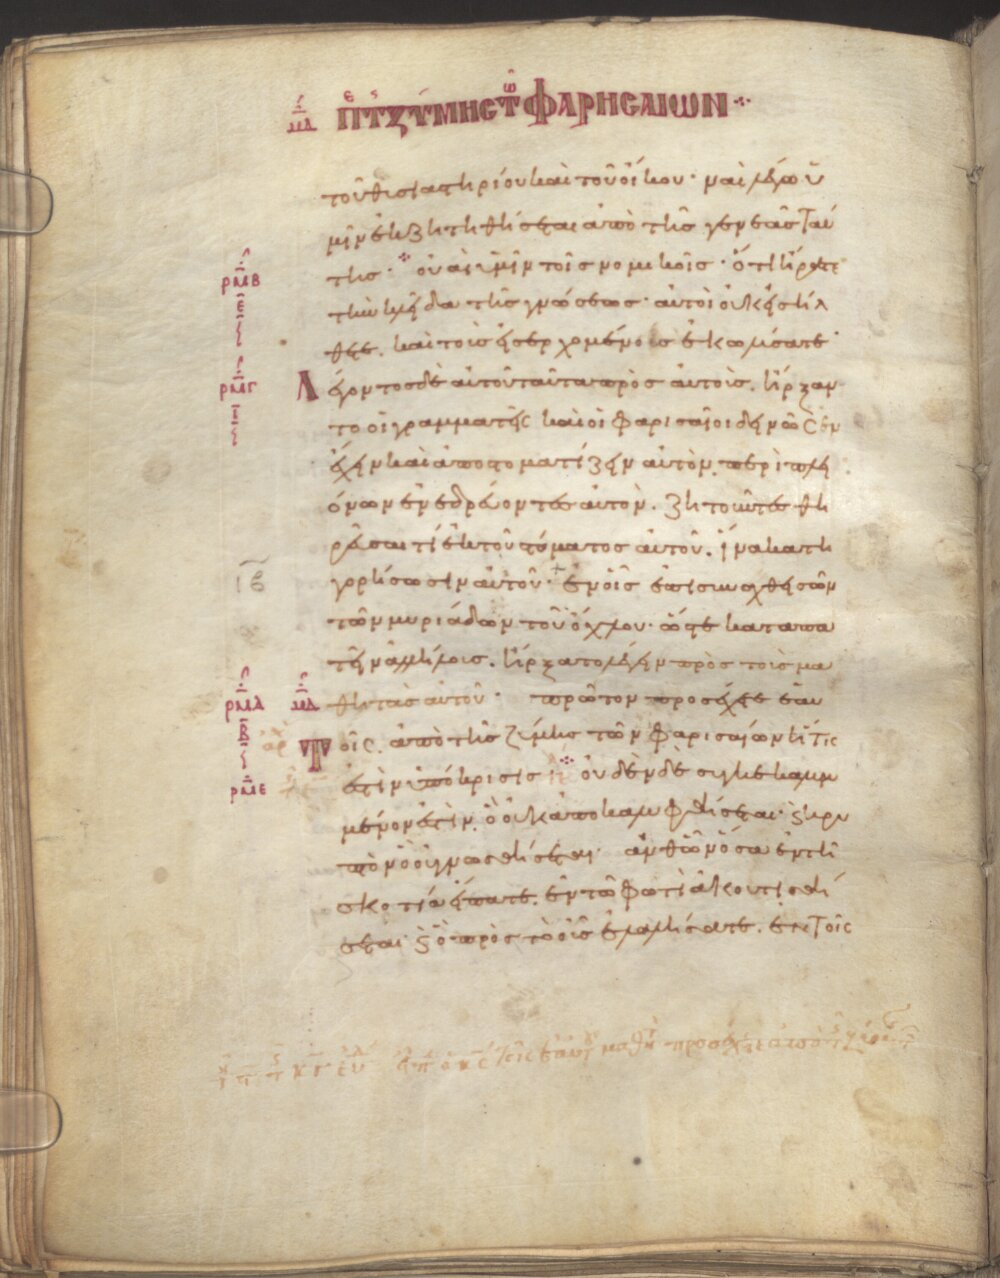 μδ περὶ τῆς ζύμης τῶν φαρησαίων
τοῦ θυσιαστηρίου καὶ τοῦ οἴκου· ναὶ λέγω ὑ
μῖν ἐκζητηθήσεται ἀπὸ τῆς γενεᾶς ταύ
της· οὐαὶ ὑμῖν τοῖς νομικοῖς· ὅτι ἤρατε
ρμβ
τὴν κλεῖδα τῆς γνώσεως· αὐτοὶ οὐκ εἰσήλ
ε
θετε. καὶ τοὺς εἰσερχομένους ἐκωλύσατε·
ρμγ
Λέγοντος δὲ αὐτοῦ ταῦτα πρὸς αὐτοὺς. ἤρξαν
ι
το οἱ γραμματεῖς καὶ οἱ φαρισαῖοι δεινῶς ἐν
έχειν καὶ ἀποστοματίζειν αὐτὸν. περὶ πλει
όνων ἐνεδρεύοντες αὐτὸν. ζητοῦντες θη
ρεῦσαι τί ἐκ τοῦ στόματος αὐτοῦ. ἵνα κατη
ιβ
γορήσωσιν αὐτοῦ· ἐν οἷς ἐπισυναχθεισῶν
τῶν μυριάδων τοῦ ὄχλου· ὥστε καταπα
τεῖν ἀλλήλους. ἤρξατο λέγειν πρὸς τοὺς μα
ρμδ μδ
θητὰς αὐτοῦ· πρῶτον προσέχετε ἑαυ
β
τοῖς. ἀπὸ τῆς ζύμης τῶν φαρισαίων ἥτις
ἐστὶν ὑπόκρισις· οὐδὲν δὲ συγκεκαλυμ
ρμε
μένον ἐστὶν. ὃ οὐκ ἀποκαλυφθήσεται· ϗ κρυ
πτὸν ὃ οὐ γνωσθήσεται· ἀνθ ὧν ὅσα ἐν τῆ
σκοτία εἴπατε. ἐν τῶ φωτὶ ἀκουσθή
σεται· ϗ ὃ πρὸς τὸ οὖς ἐλαλήσατε. ἐν τοῖς